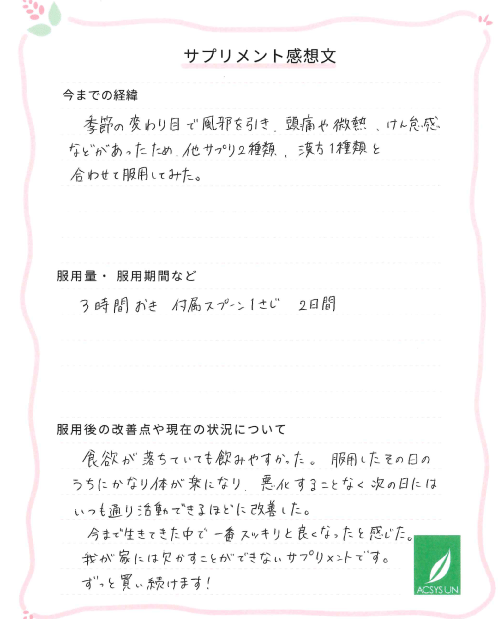 サプリメント感想文
今までの経緯
季節の変わり目で風邪を引き、頭痛や微熱、けん怠感
などがあったため、他サプリ2種類、漢方1種類と
合わせて服用してみた。
服用量・服用期間など
3時間おき 付属スプーン1さじ 2日間
服用後の改善点や現在の状況について
食欲が落ちていても飲みやすかった。服用したその日の
うちにかなり体が楽になり、悪化することなく次の日には
いつも通り活動できるほどに改善した。
今まで生きてきた中で一番スッキリと良くなったと感じた。
我が家には欠かすことができないサプリメントです。
ずっと買い続けます!
ACSYSUN